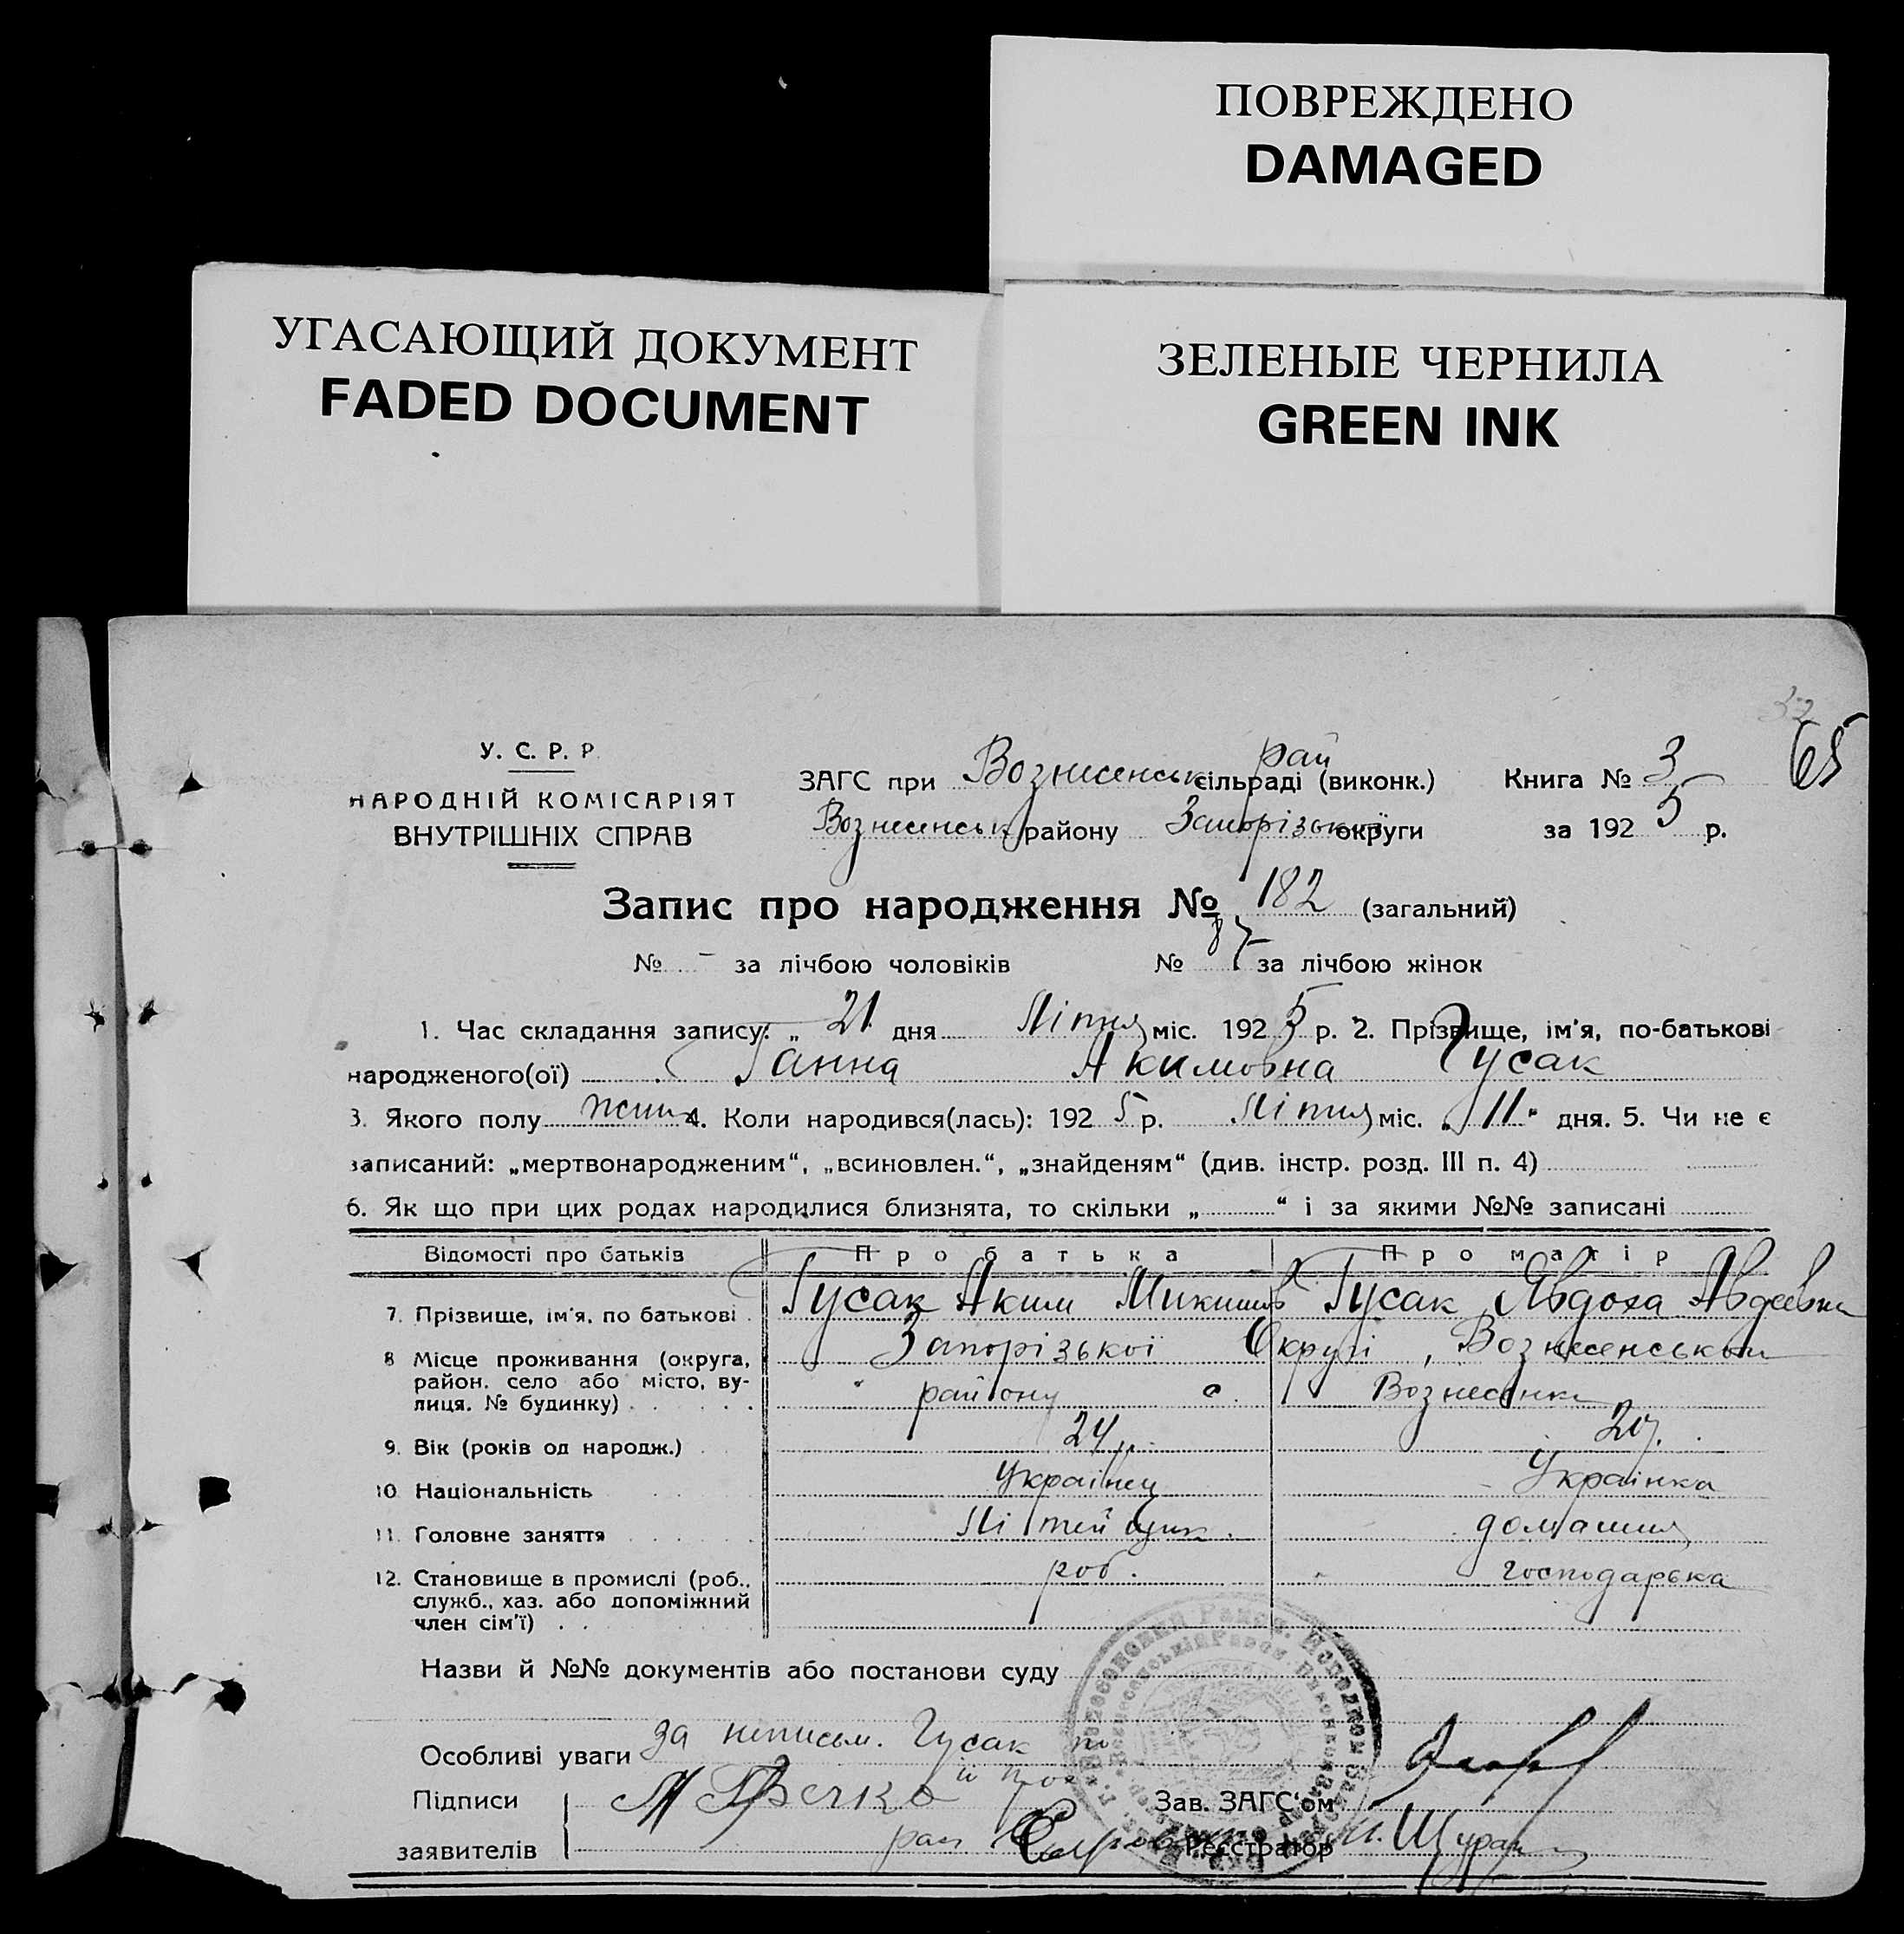 ПОВРЕЖДЕНО
DAMAGED
УГАСАЮЩИЙ ДОКУМЕНТ
FADED DOCUMENT
ЗЕЛЕНЫЕ ЧЕРНИЛА
GREEN INK
32
65
У. С. Р. Р
НАРОДНІЙ КОМІСАРІЯТ
ВНУТРІШНІХ СПРАВ
ЗАГС при Вознесенськ рай сільраді (виконк.) Книга № 3
Вознесенськ району Запорізької округи за 1925 р.
Запис про народження № 182 (загальний)
№ - за лічбою чоловіків № 87 за лічбою жінок
1. Час складання запису: „ 21 дня Літня міс. 1925 р. 2. Прізвище, ім'я, по-батькові
народженого(ої) Ганна Акимовна Гусак
3. Якого полу жін 4. Коли народився(лась): 1925 р. Літня міс. „ 11 " дня. 5. Чи не є
записаний: „мертвонародженим“, „всиновлен.“, „знайденям“ (див. інстр. розд. III п. 4)
6. Як що при цих родах народилися близнята, то скільки „ “ і за якими №№ записані
Відомості про батьків Про батька Про матір
7. Прізвище, ім'я, по батькові Гусак Аким Микитов Гусак Явдоха Авдеевна
8 Місце проживання (округа, район, село або місто, вулиця, № будинку) Запорізької Округі, Вознесенського
району с. Вознесенка
9. Вік (років од народж.) 24 р. 20 р.
10 Національність Українец Українка
11. Головне заняття Літейщик домашня
12. Становище в промислі (роб., служб., хаз. або допоміжний член сім'ї) роб. господарька
Назви й №№ документів або постанови суду
Особливі уваги за неписьм. Гусак по
Підписи
заявителів
Зав. ЗАГС'ом
Реєстратор